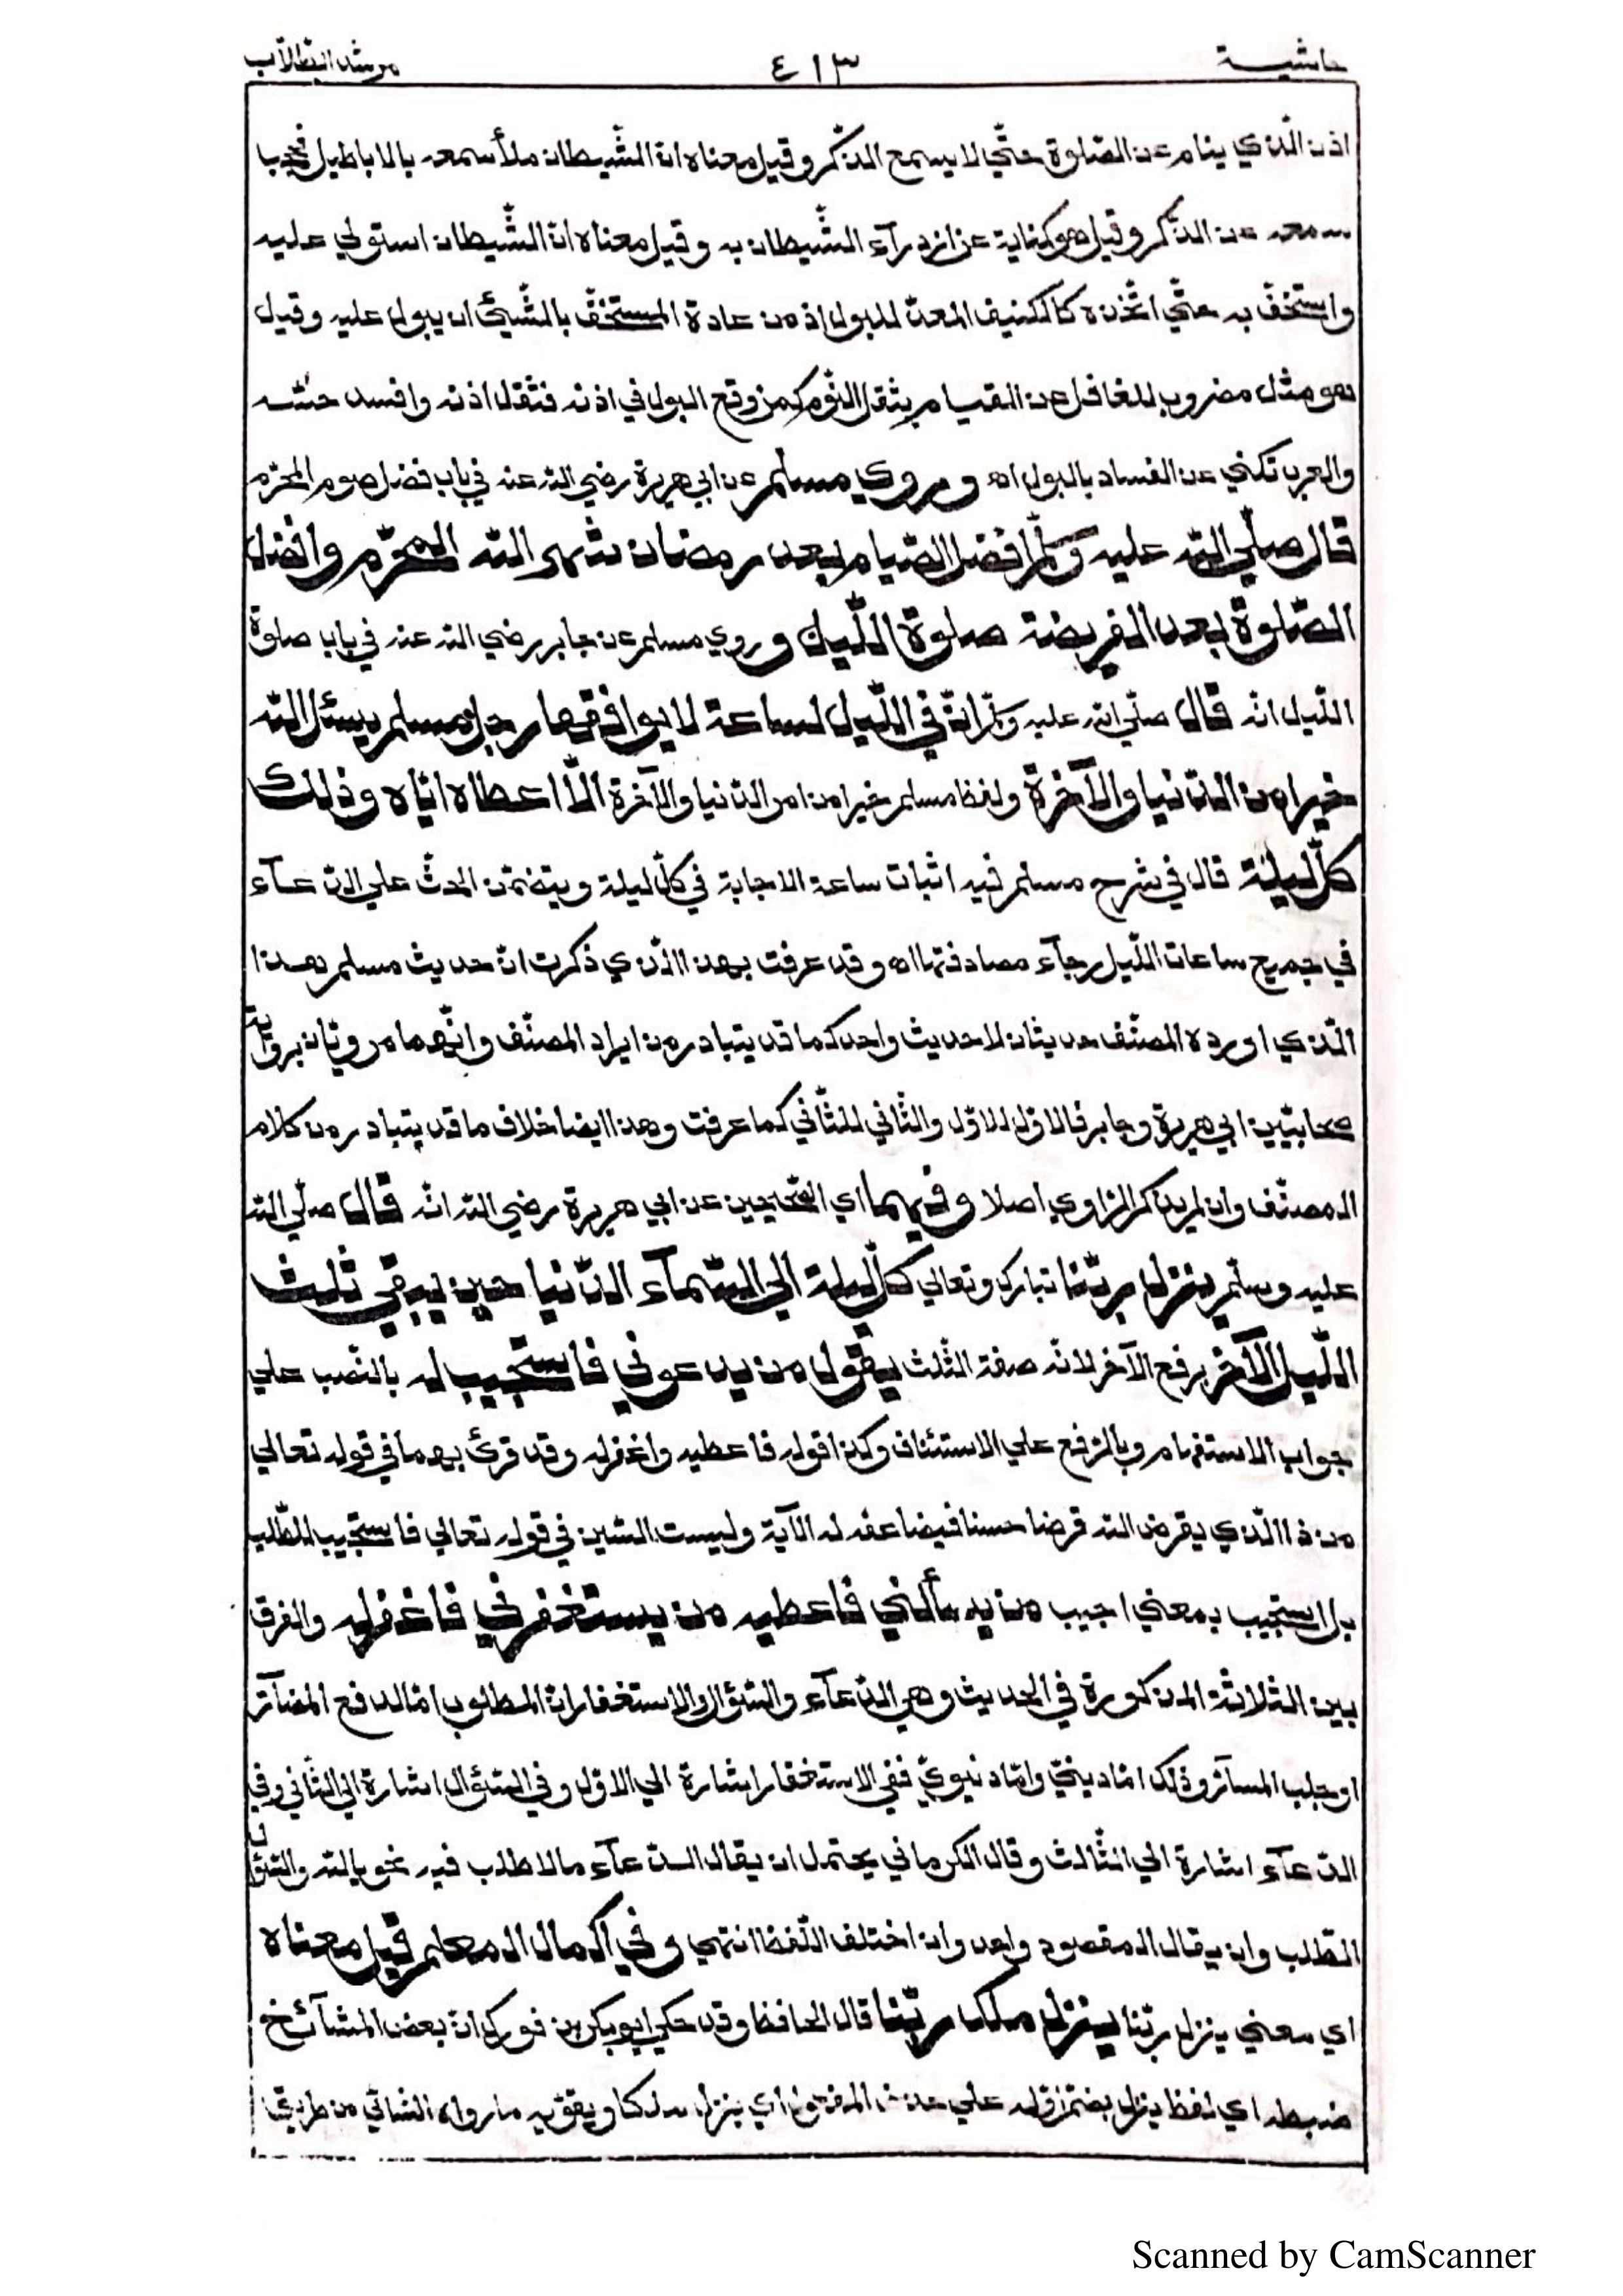 حاشية ٤١٣ مرشد الطلاب
اذن الّذي ينام عن الصّلوة حتّي لا يسمع الذّكر وقيل معناه انّ الشّيطان ملأ سمعه بالاباطيل فحجبا
سمعه عن الذّكر وقيل هو كناية عن ازدرآء الشّيطان به وقيل معناه انّ الشّيطان استولي عليه
واستخفّ به حتّي اتّخذه كالكنيف المعدّ للبول اذ من عادة المستخفّ بالشّيئ ان يبول عليه وقيل
هو مثل مضروب للغافل عن القيام بثقل النّوم كمن وقع البول في اذنه فثقل اذنه وافسد حسّه
والعرب تكني عن الفساد بالبول اه وروي مسلم عن ابي هريرة رضي الله عنه في باب فضل صوم المحرّم
قال صلّي الله عليه وسلّم افضل الصّيام بعد رمضان شهر الله المحرّم وافضل
الصّلوة بعد الفريضة صلوة اللّيل وروي مسلم عن جابر رضي الله عنه في باب صلوة
اللّيل انّه قال صلّي الله عليه وسلّم انّ في اللّيل لساعة لا يوافقها رجل مسلم يسئل الله
خيرا من الدّنيا والآخرة ولفظ مسلم خيرا من امر الدّنيا والآخرة الّا اعطاه ايّاه وذلك
كلّ ليلة قال في شرح مسلم فيه اثبات ساعة الاجابة في كلّ ليلة ويتضمّن الحثّ علي الدّعآء
في جميع ساعات اللّيل رجآء مصادفتها اه وقد عرفت بهذا الّذي ذكرت انّ حديث مسلم هذا
الّذي اورده المصنّف حديثان لا حديث واحد كما قد يتبادر من ايراد المصنّف وانّهما مرويّان برواية
صحابيّين ابي هريرة وجابر فالاوّل للاوّل والثّاني للثّاني كما عرفت وهذا ايضا خلاف ما قد يتبادر من كلام
المصنّف وان لم يذكر الرّاوي اصلا وفيهما اي الصّحيحين عن ابي هريرة رضي الله انّه قال صلّي الله
عليه وسلّم ينزل ربّنا تبارك وتعالي كلّ ليلة الي السّمآء الدّنيا حين يبقي ثلث
اللّيل الآخر برفع الآخر لانّه صفة الثّلث يقول من يدعوني فاستجيب له بالنّصب علي
جواب الاستفهام وبالرّفع علي الاستئناف وكذا قوله فاعطيه واغفر له وقد قرئ بهما في قوله تعالي
من ذا الّذي يقرض الله قرضا حسنا فيضاعفه له الآية وليست السّين في قوله تعالي فاستجيب للطّلب
بل استجيب بمعني اجيب من يسألني فاعطيه من يستغفرني فاغفر له والفرق
بين الثّلاثة المذكورة في الحديث وهي الدّعآء والسّؤال والاستغفار انّ المطلوب امّا لدفع المضآرّ
او جلب المسآرّ وذلك امّا دينيّ وامّا دنيويّ ففي الاستغفار اشارة الي الاوّل وفي السّؤال اشارة الي الثّاني وفي
الدّعآء اشارة الي الثّالث وقال الكرماني يحتمل ان يقال الدّعآء ما لا طلب فيه نحو يا الله والسّؤال
الطّلب وان يقال المقصود واحد وان اختلف اللّفظ انتهي وفي اكمال المعلم قيل معناه
اي معني ينزل ربّنا ينزل ملك ربّنا قال الحافظ وقد حكي ابو بكر بن فورك انّ بعض المشآئخ
ضبطه اي لفظ ينزل بضمّ اوّله علي حذف المفعول اي ينزل ملكا ويقوّيه ما رواه النّسائي من طريق
Scanned by CamScanner